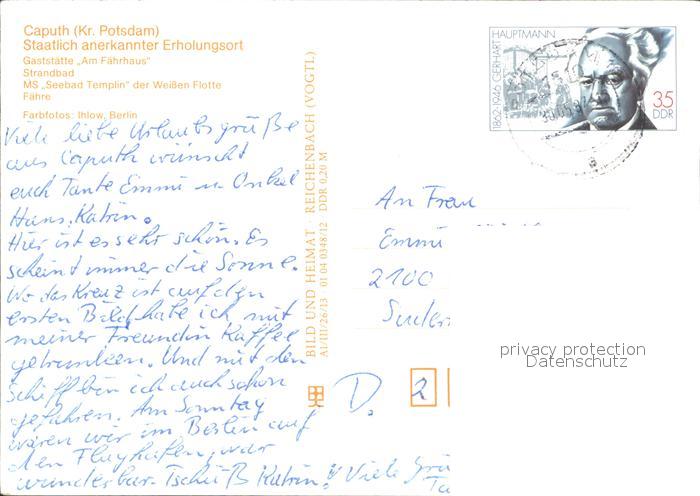 Caputh (Kr. Potsdam)
Staatlich anerkannter Erholungsort
Gaststätte „Am Fährhaus"
Strandbad
MS „Seebad Templin" der Weißen Flotte
Fähre
Farbfotos: Ihlow, Berlin
Viele liebe Urlaubsgrüße
aus Caputh wünscht
euch Tante Emmi u. Onkel
Hans, Katrin.
Hier ist es sehr schön. Es
scheint immer die Sonne.
Wo das Kreuz ist auf den
ersten Bild habe ich mit
meiner Freundin Kaffee
getrunken. Und mit den
Schiff bin ich auch schon
gefahren. Am Sonntag
waren wir im Berlin auf
den Flughafen, war
wunderbar. Tschüß Katrin! Viele Grü
Ta
BILD UND HEIMAT · REICHENBACH (VOGTL)
A1/III/26/13 01 04 0348/12 DDR 0,20 M
1862-1946 GERHART HAUPTMANN
35
DDR
An Frau
Emmi
2100
Suder
D.
2
privacy protection
Datenschutz